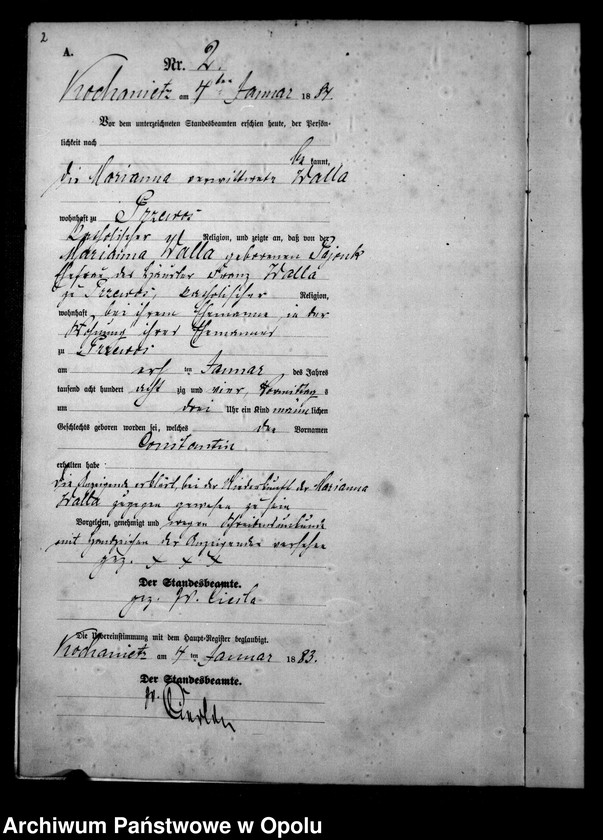 2
A.
Nr. 2.
Kochanietz am 4ten Januar 1884.
Vor dem unterzeichneten Standesbeamten erschien heute, der Persön-
lichkeit nach
bekannt,
die Marianna verwittwete Walla
wohnhaft zu Przewos
katholischer Religion, und zeigte an, daß von der
Marianna Walla geborenen Pajonk
Ehefrau des Häusler Franz Walla
zu Przewos, katholischer Religion,
wohnhaft bei ihrem Ehemanne, in der
Wohnung ihres Ehemannes
zu Przewos
am ten Januar des Jahres
tausend acht hundert acht zig und vier, Vormittags
um drei Uhr ein Kind männlichen
Geschlechts geboren worden sei, welches den Vornamen
Constantin
erhalten habe
Die Anzeigende erklärt, bei der Niederkunft der Marianna
Walla zugegen gewesen zu sein
Vorgelesen, genehmigt und wegen Schreibensunkunde
mit Handzeichen der Anzeigenden versehen
gez. x x x
Der Standesbeamte.
gez. W. Ciesla
Die Uebereinstimmung mit dem Haupt-Register beglaubigt.
Kochanietz am 4ten Januar 1883.
Der Standesbeamte.
Archiwum Państwowe w Opolu